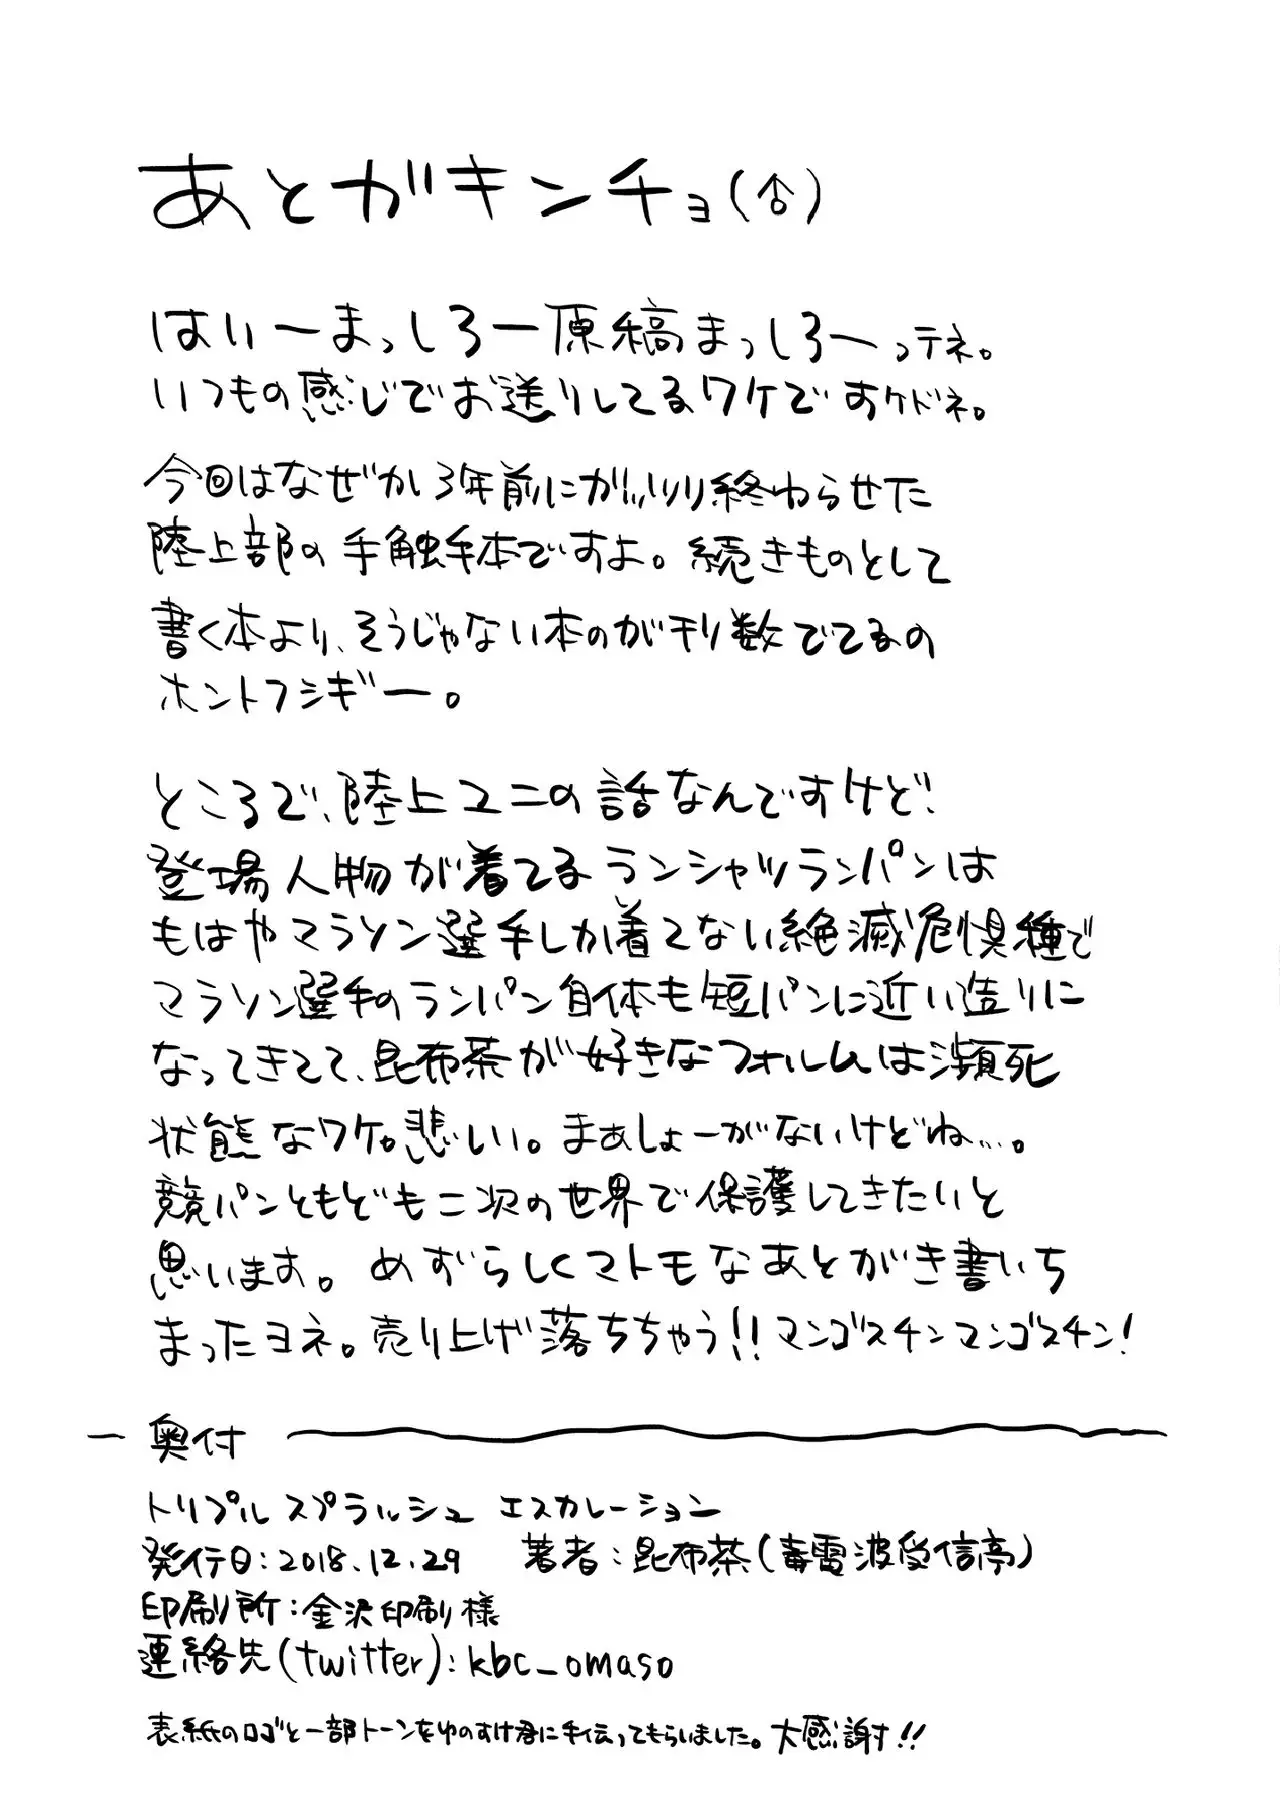 あとがキンチョ(♂)
はい〜まっしろー原稿まっしろーってネ。
いつもの感じでお送りしてるワケですケドネ。
今回はなぜか3年前にガッツリ終わらせた
陸上部の手触手本ですよ。続きものとして
書く本より、そうじゃない本のが刊数でてるの
ホントフシギー。
ところで、陸上ユニの話なんですけど!
登場人物が着てるランシャツランパンは
もはやマラソン選手しか着てない絶滅危惧種で
マラソン選手のランパン自体も短パンに近い造りに
なってきてて、昆布茶が好きなフォルムは瀕死
状態なワケ。悲しい。まぁしょーがないけどね…。
競パンともども二次の世界で保護してきたいと
思います。めずらしくマトモなあとがき書いち
まったヨネ。売り上げ落ちちゃう!!マンゴスチンマンゴスチン!
ー 奥付
トリプルスプラッシュ エスカレーション
発行日:2018.12.29 著者:昆布茶(毒電波受信亭)
印刷所:金沢印刷様
連絡先(twitter):kbc_omaso
表紙のロゴと一部トーンをゆのすけ君に手伝ってもらいました。大感謝!!